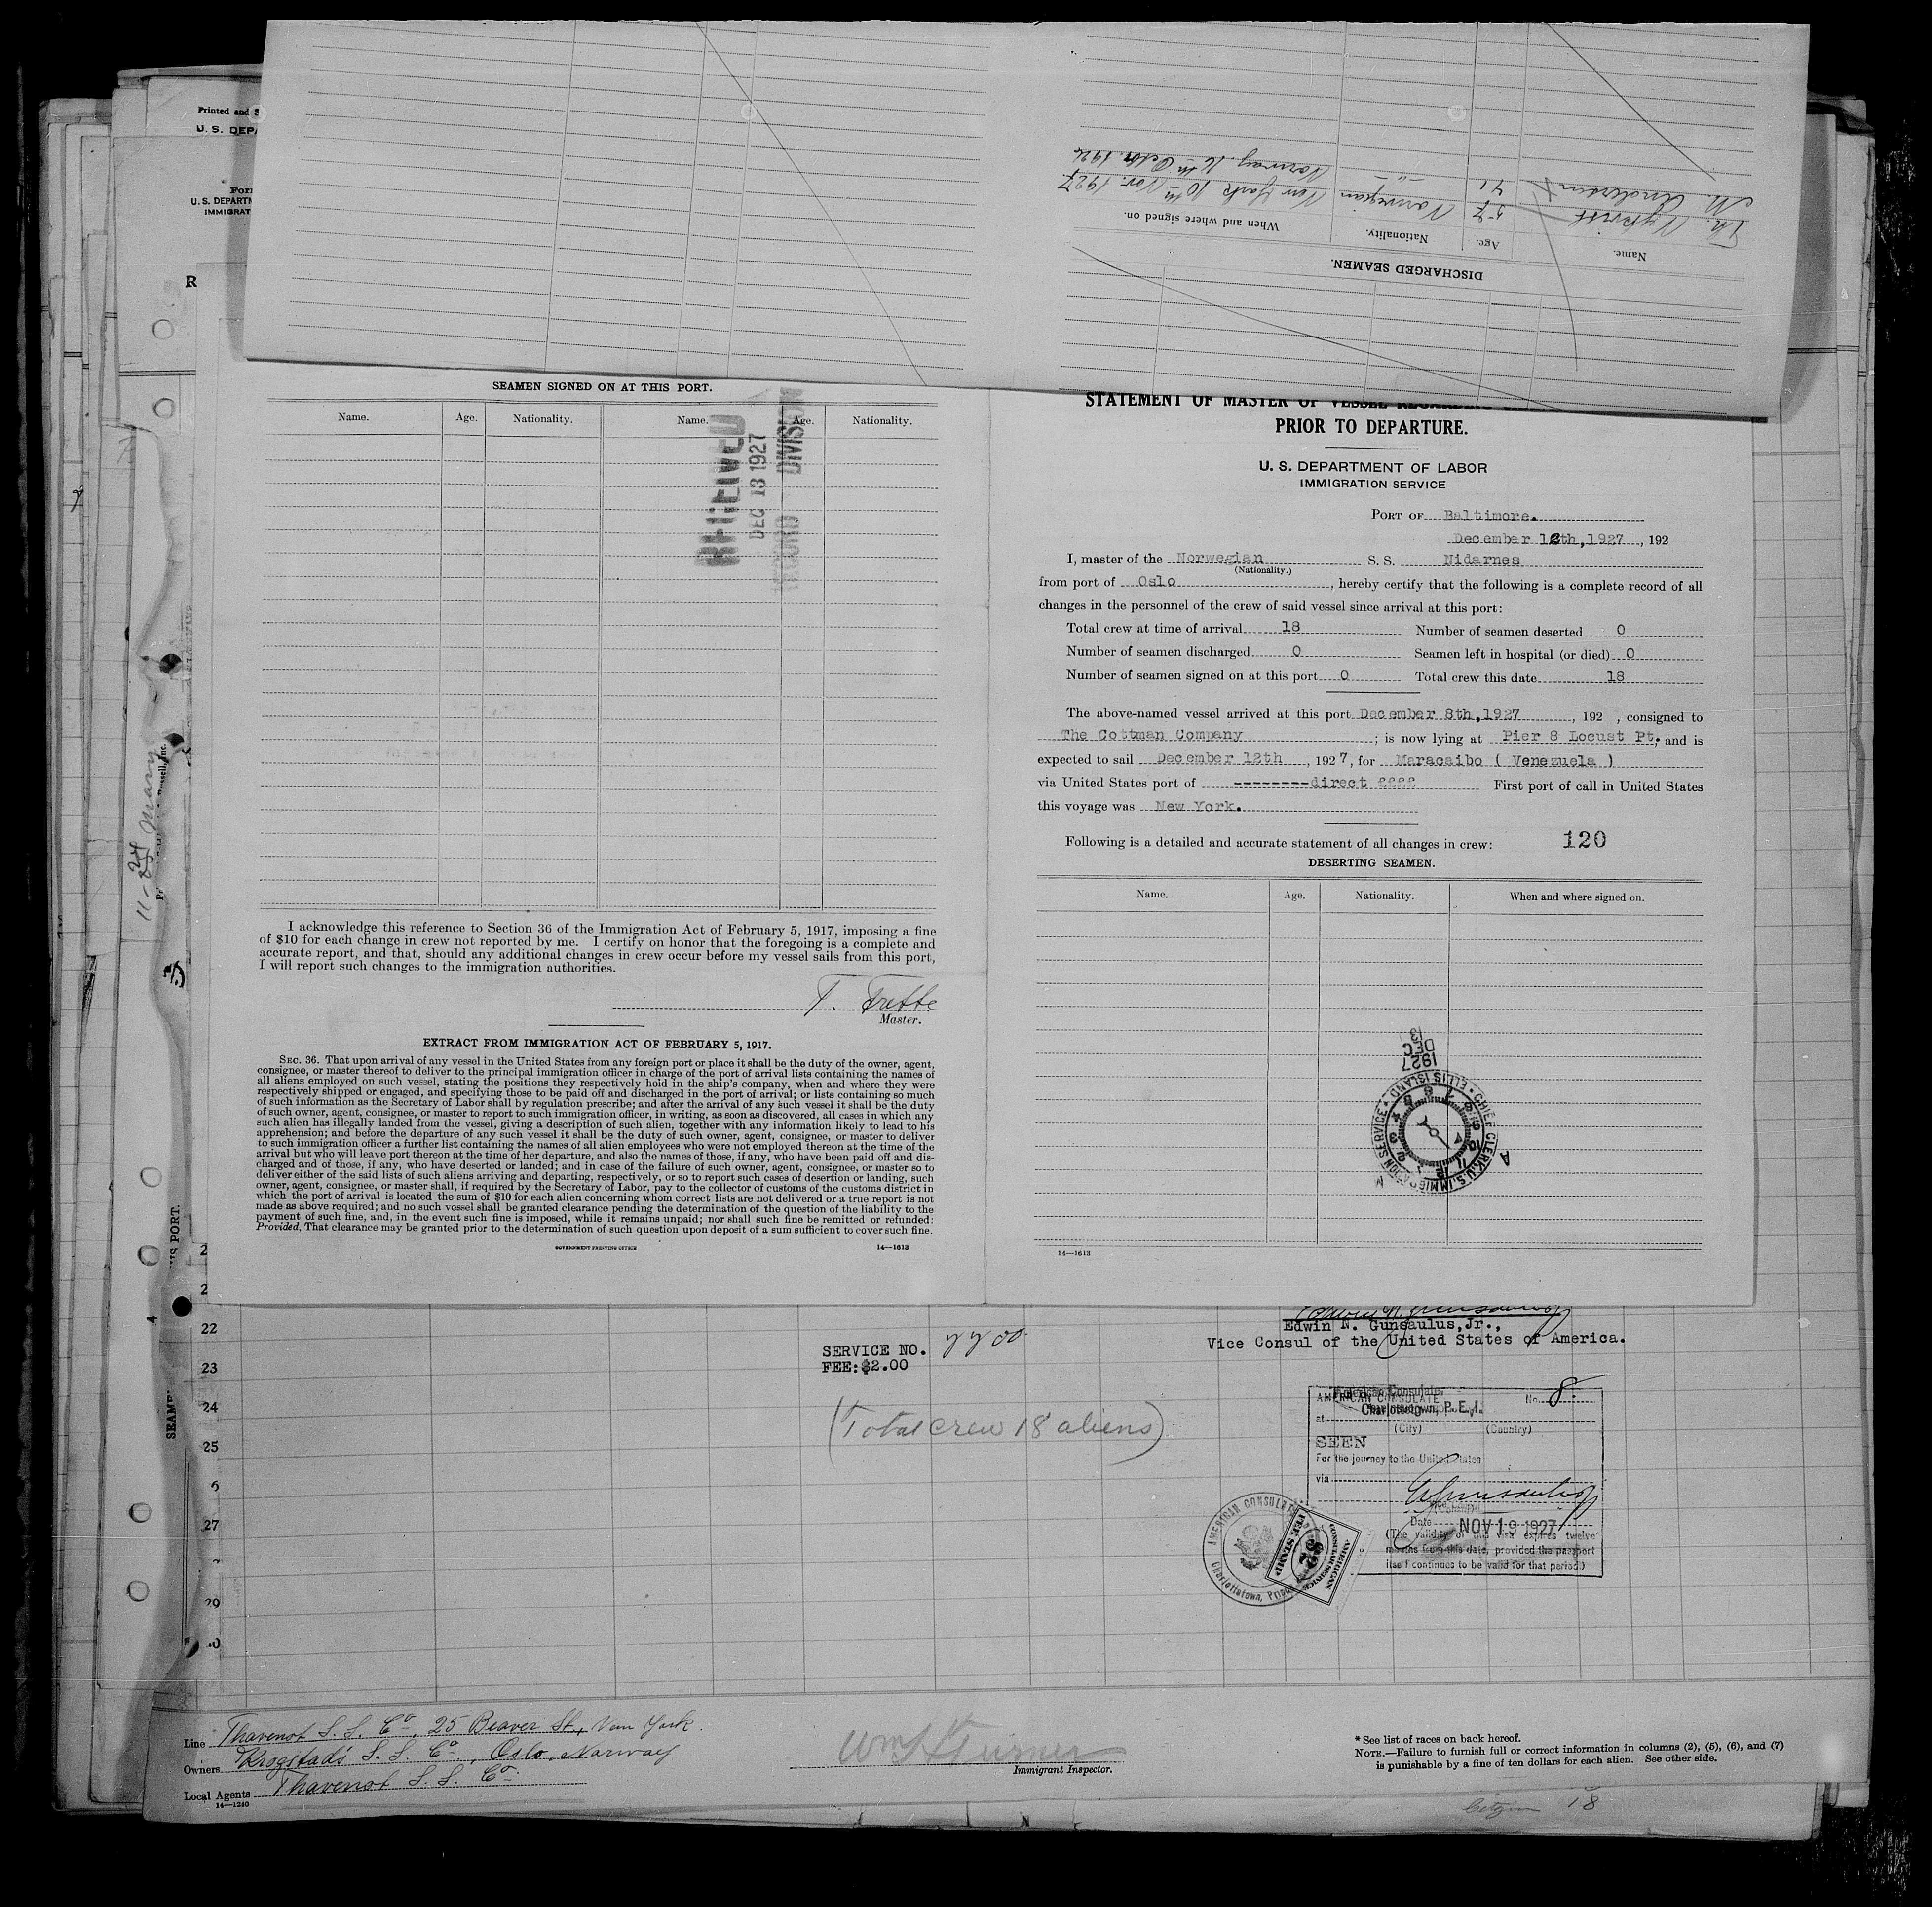 Printed and S
U. S. DEPA
Form
U. S. DEPARTM
IMMIGRAT
R
DISCHARGED SEAMEN.
Name.
Age.
Nationality.
When and where signed on.
57 Norwegian New York 10th Nov. 1927
M. Andersen 41 -"- Norway, 16th Octbr. 1926
SEAMEN SIGNED ON AT THIS PORT.
Name. Age. Nationality. Name. Age. Nationality.
RECEIVED
DEC 13 1927
RECORD DIVISION
I acknowledge this reference to Section 36 of the Immigration Act of February 5, 1917, imposing a fine
of $10 for each change in crew not reported by me. I certify on honor that the foregoing is a complete and
accurate report, and that, should any additional changes in crew occur before my vessel sails from this port,
I will report such changes to the immigration authorities.
T. Trette
Master.
EXTRACT FROM IMMIGRATION ACT OF FEBRUARY 5, 1917.
SEC. 36. That upon arrival of any vessel in the United States from any foreign port or place it shall be the duty of the owner, agent,
consignee, or master thereof to deliver to the principal immigration officer in charge of the port of arrival lists containing the names of
all aliens employed on such vessel, stating the positions they respectively hold in the ship's company, when and where they were
respectively shipped or engaged, and specifying those to be paid off and discharged in the port of arrival; or lists containing so much
of such information as the Secretary of Labor shall by regulation prescribe; and after the arrival of any such vessel it shall be the duty
of such owner, agent, consignee, or master to report to such immigration officer, in writing, as soon as discovered, all cases in which any
such alien has illegally landed from the vessel, giving a description of such alien, together with any information likely to lead to his
apprehension; and before the departure of any such vessel it shall be the duty of such owner, agent, consignee, or master to deliver
to such immigration officer a further list containing the names of all alien employees who were not employed thereon at the time of the
arrival but who will leave port thereon at the time of her departure, and also the names of those, if any, who have been paid off and dis-
charged and of those, if any, who have deserted or landed; and in case of the failure of such owner, agent, consignee, or master so to
deliver either of the said lists of such aliens arriving and departing, respectively, or so to report such cases of desertion or landing, such
owner, agent, consignee, or master shall, if required by the Secretary of Labor, pay to the collector of customs of the customs district in
which the port of arrival is located the sum of $10 for each alien concerning whom correct lists are not delivered or a true report is not
made as above required; and no such vessel shall be granted clearance pending the determination of the question of the liability to the
payment of such fine, and, in the event such fine is imposed, while it remains unpaid; nor shall such fine be remitted or refunded:
Provided, That clearance may be granted prior to the determination of such question upon deposit of a sum sufficient to cover such fine.
GOVERNMENT PRINTING OFFICE 14—1613
STATEMENT OF MASTER OF VESSEL REGARDING
PRIOR TO DEPARTURE.
U. S. DEPARTMENT OF LABOR
IMMIGRATION SERVICE
PORT OF Baltimore.
December 12th,1927, 192
I, master of the Norwegian S. S. Nidarnes
(Nationality.)
from port of Oslo, hereby certify that the following is a complete record of all
changes in the personnel of the crew of said vessel since arrival at this port:
Total crew at time of arrival 18 Number of seamen deserted 0
Number of seamen discharged 0 Seamen left in hospital (or died) 0
Number of seamen signed on at this port 0 Total crew this date 18
The above-named vessel arrived at this port December 8th,1927, 192 , consigned to
The Cottman Company; is now lying at Pier 8 Locust Pt. and is
expected to sail December 12th, 1927, for Maracaibo ( Venezuela )
via United States port of ---------direct ££££ First port of call in United States
this voyage was New York.
Following is a detailed and accurate statement of all changes in crew: 120
DESERTING SEAMEN.
Name. Age. Nationality. When and where signed on.
1927
DEC
13
CHIEF CLERK U.S. IMMIGRATION SERVICE • ELLIS ISLAND •
14—1613
11-24 Mary
Russell, Inc.
IS PORT.
4
SEAME
2
2
22
23
24
25
6
27
29
0
SERVICE NO. 2200
FEE:$2.00
(Total crew 18 aliens)
Edwin N. Gunsaulus,Jr.,
Vice Consul of the United States of America.
AMERICAN CONSULATE No. 8.
American Consulate,
at Charlottetown, P. E. I.
(City) (Country)
SEEN
For the journey to the United States
via
Date NOV 19 1927
(The validity of this visa expires twelve
months from this date, provided the passport
itself continues to be valid for that period.)
AMERICAN CONSULATE
Charlottetown, Prince
AMERICAN CONSULAR SERVICE
FEE STAMP
Line Thavenot S. S. Co., 25 Beaver St., New York.
Owners Krogstad's S. S. Co., Oslo, Norway
Local Agents Thavenot S. S. Co.
14—1240
Wm Turner
Immigrant Inspector.
* See list of races on back hereof.
NOTE.—Failure to furnish full or correct information in columns (2), (5), (6), and (7)
is punishable by a fine of ten dollars for each alien. See other side.
18